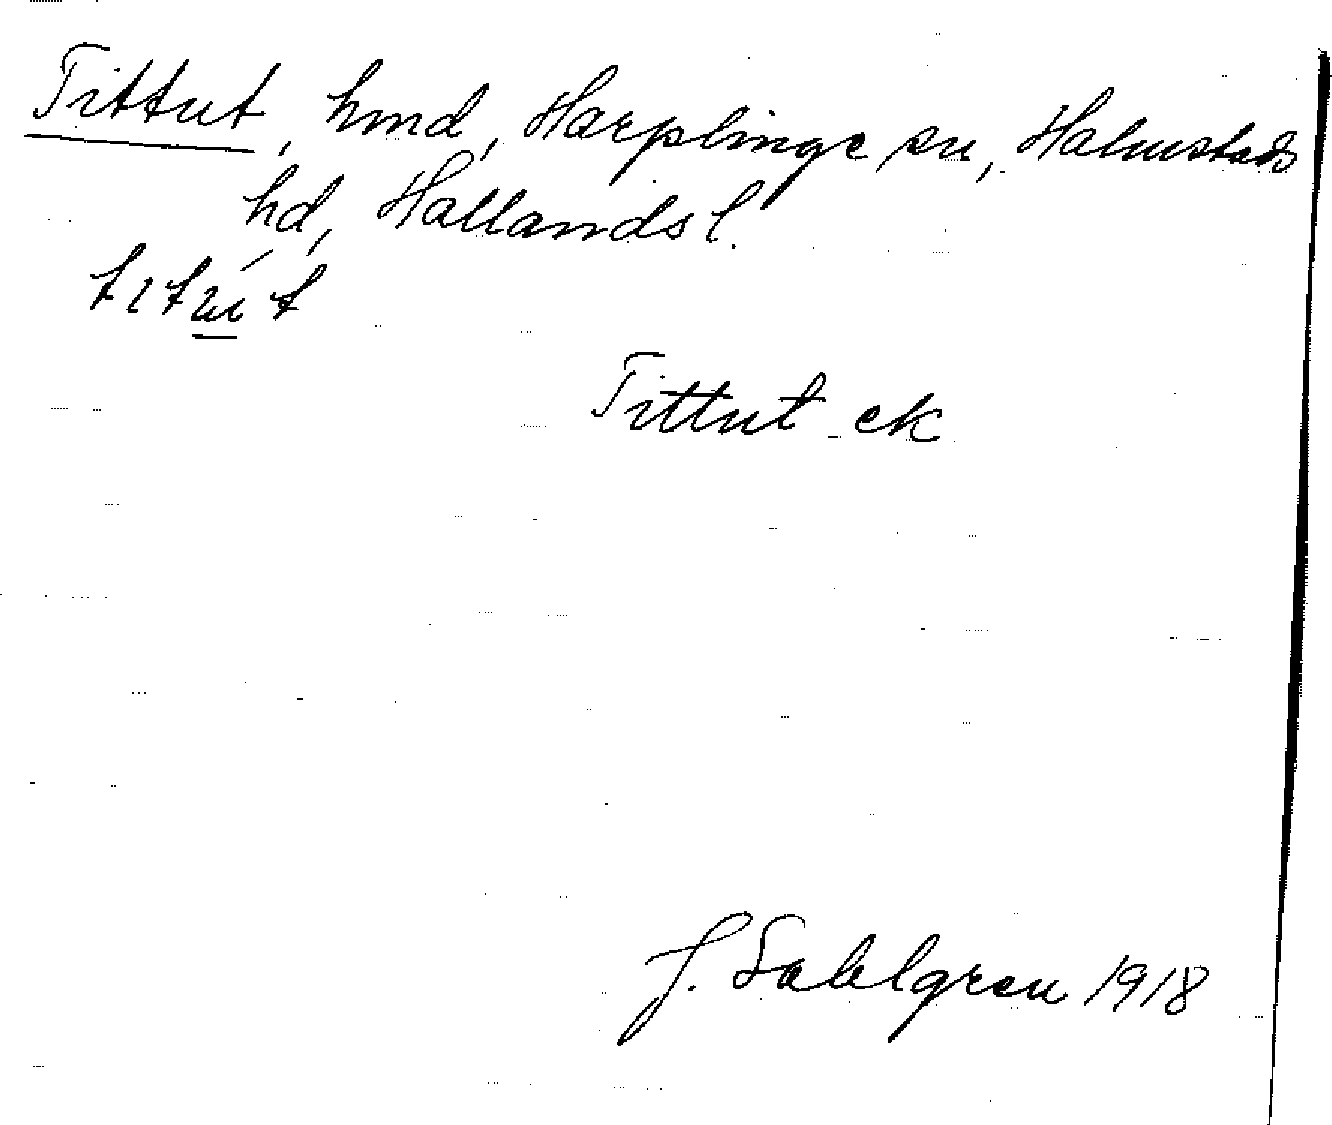 Tittut, hmd, Harplinge sn, Halmstads
hd, Hallands l.
titút
Tittut ek
J. Sahlgren 1918